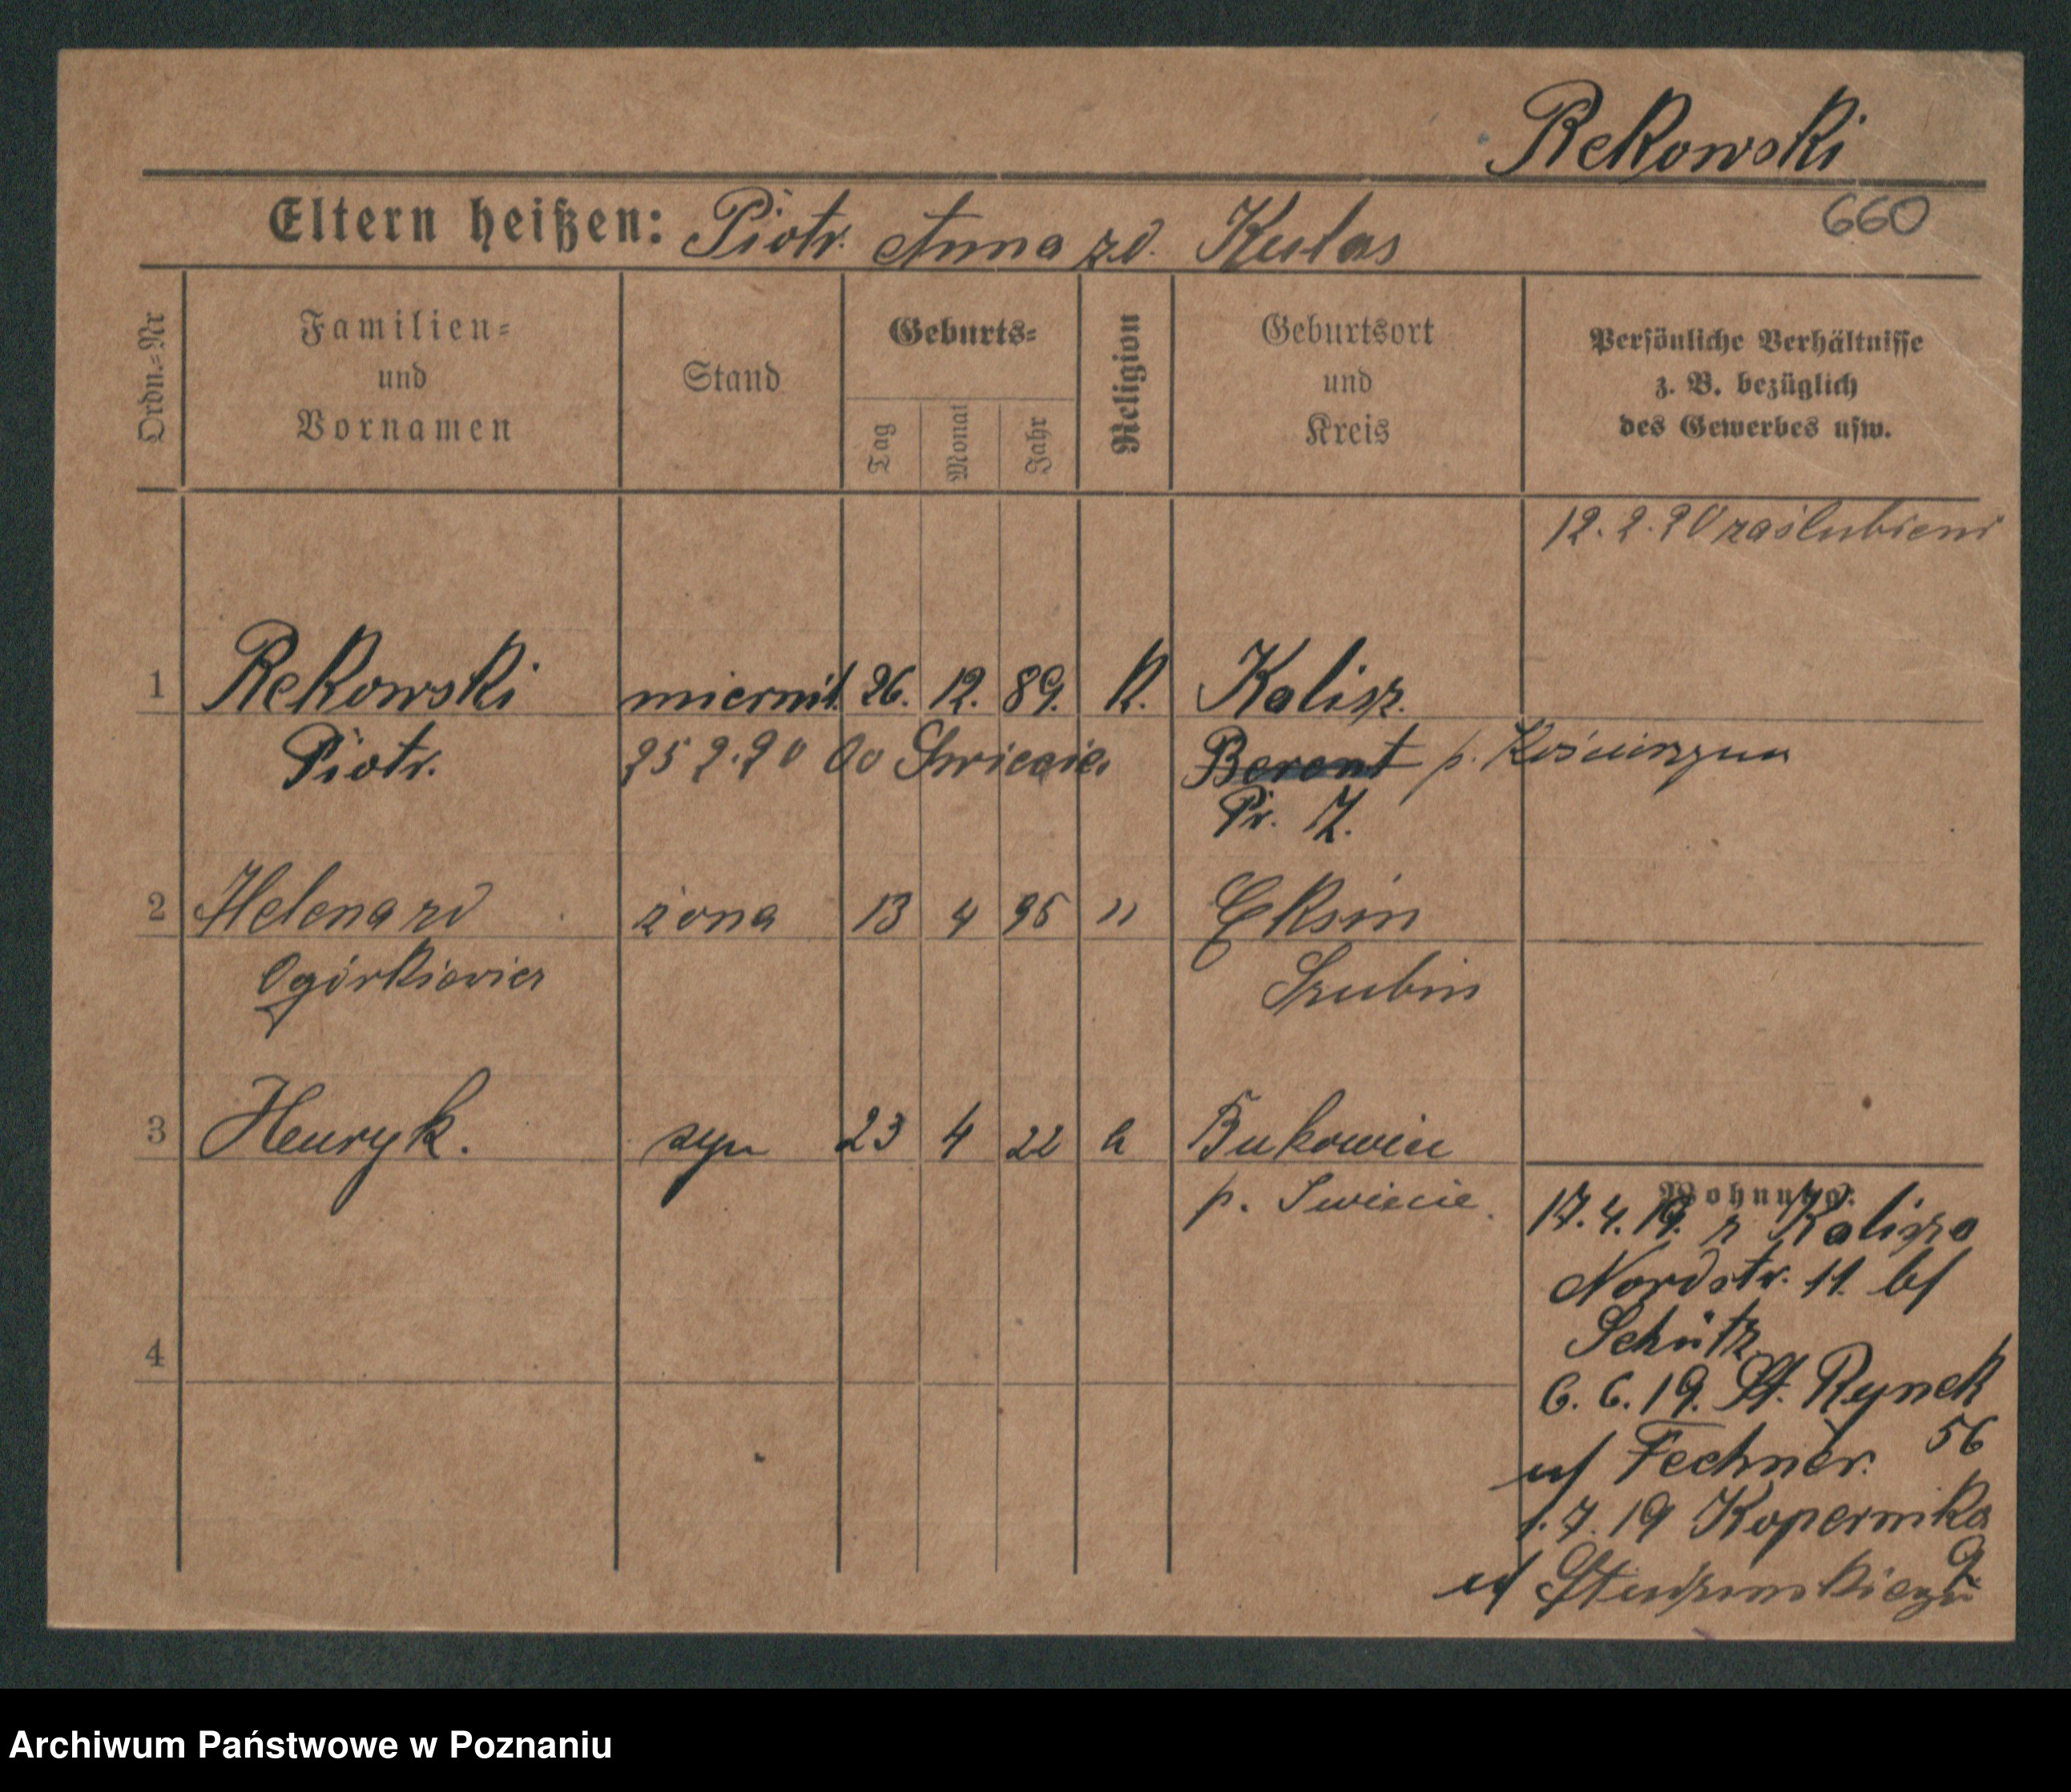 Rekowski
660
Eltern heißen: Piotr. Anna zd. Kulas
Ordn.=Nr
Familien=
und
Vornamen
Stand
Geburts=
Tag
Monat
Jahr
Religion
Geburtsort
und
Kreis
Persönliche Verhältnisse
z. B. bezüglich
des Gewerbes usw.
12. 2. 20 zaślubieni
1 Rekowski miernik 26. 12. 89. K. Kalisz.
Piotr. 25 2. 20 do Świecie. Berent p. Kościerzyna
Pr. Z.
2 Helena zd żona 13 4 95 " Eksin
Ogórkiewicz Szubin
3 Henryk. syn 23 4 22 k Bukowiec
p. Swiecie.
Wohnung:
17. 4. 19. z Kalisza
Nordstr. 11. b/
Schütz
4
6. 6. 19. St. Rynek
56
u/ Fechner.
1. 7. 19 Kopernika
9
u/
Archiwum Państwowe w Poznaniu